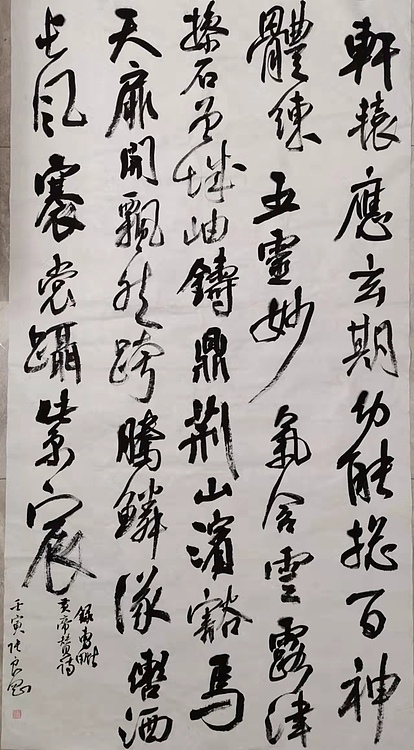 軒轅應玄期幼能摠百神
體練五靈妙氣含雲露津
摻石曾城岫鑄鼎荆山濱豁焉
天扉開飄然跨騰鱗轡洒
長風褰裳躡紫宸
錄曹毗
黄帝贊詩
壬寅張良